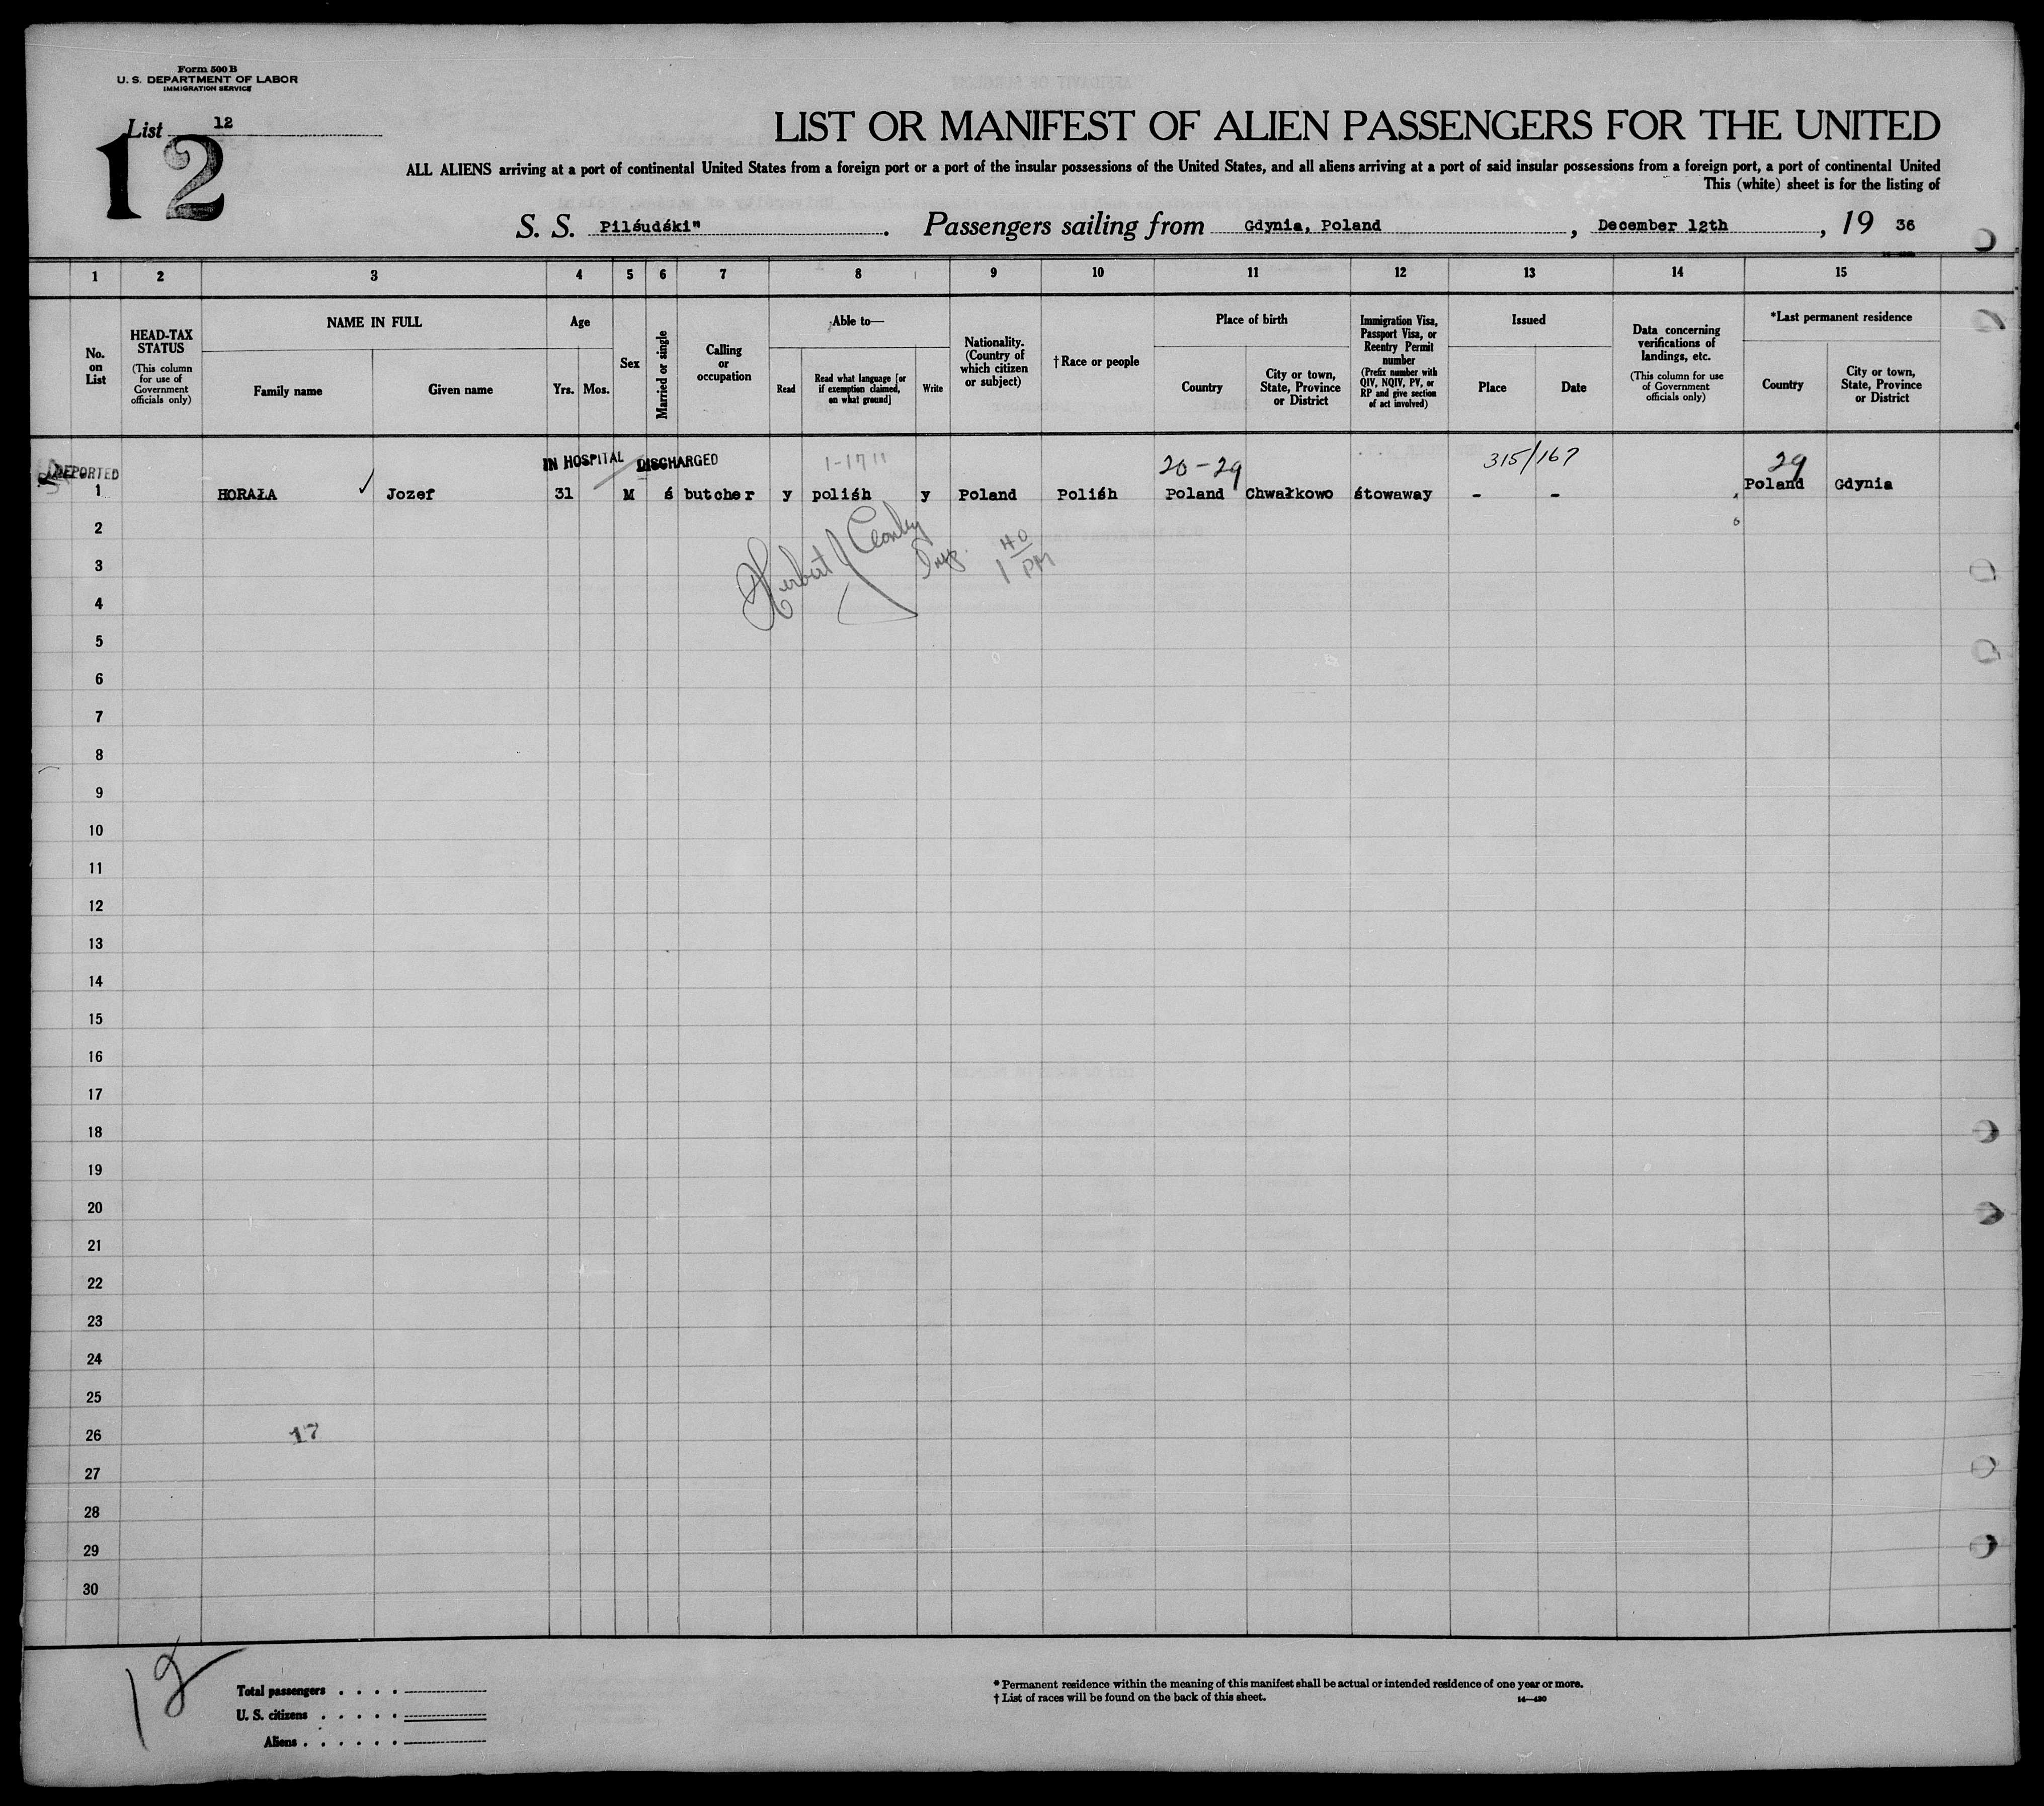 Form 500 B
U. S. DEPARTMENT OF LABOR
IMMIGRATION SERVICE
List 12
12
LIST OR MANIFEST OF ALIEN PASSENGERS FOR THE UNITED
ALL ALIENS arriving at a port of continental United States from a foreign port or a port of the insular possessions of the United States, and all aliens arriving at a port of said insular possessions from a foreign port, a port of continental United
This (white) sheet is for the listing of
S. S. Pilśudśki" . Passengers sailing from Gdynia, Poland , December 12th , 19 36
1 2 3 4 5 6 7 8 9 10 11 12 13 14 15
No. on List
HEAD-TAX STATUS
(This column for use of Government officials only)
NAME IN FULL
Family name
Given name
Age
Yrs. Mos.
Sex
Married or single
Calling or occupation
Able to—
Read
Read what language [or if exemption claimed, on what ground]
Write
Nationality. (Country of which citizen or subject)
†Race or people
Place of birth
Country
City or town, State, Province or District
Immigration Visa, Passport Visa, or Reentry Permit number
(Prefix number with QIV, NQIV, PV, or RP and give section of act involved)
Issued
Place
Date
Data concerning verifications of landings, etc.
(This column for use of Government officials only)
*Last permanent residence
Country
City or town, State, Province or District
DEPORTED IN HOSPITAL DISCHARGED 1-17 11 20-29 315/167 29
1 HORAŁA ✓ Jozef 31 M ś butcher y poliśh y Poland Poliśh Poland Chwałkowo śtowaway - - Poland Gdynia
2
Herbert J
3
4
5
6
7
8
9
10
11
12
13
14
15
16
17
18
19
20
21
22
23
24
25
26 17
27
28
29
30
12
Total passengers . . . .
U. S. citizens . . . . .
Aliens . . . . . .
* Permanent residence within the meaning of this manifest shall be actual or intended residence of one year or more.
† List of races will be found on the back of this sheet. 14—430